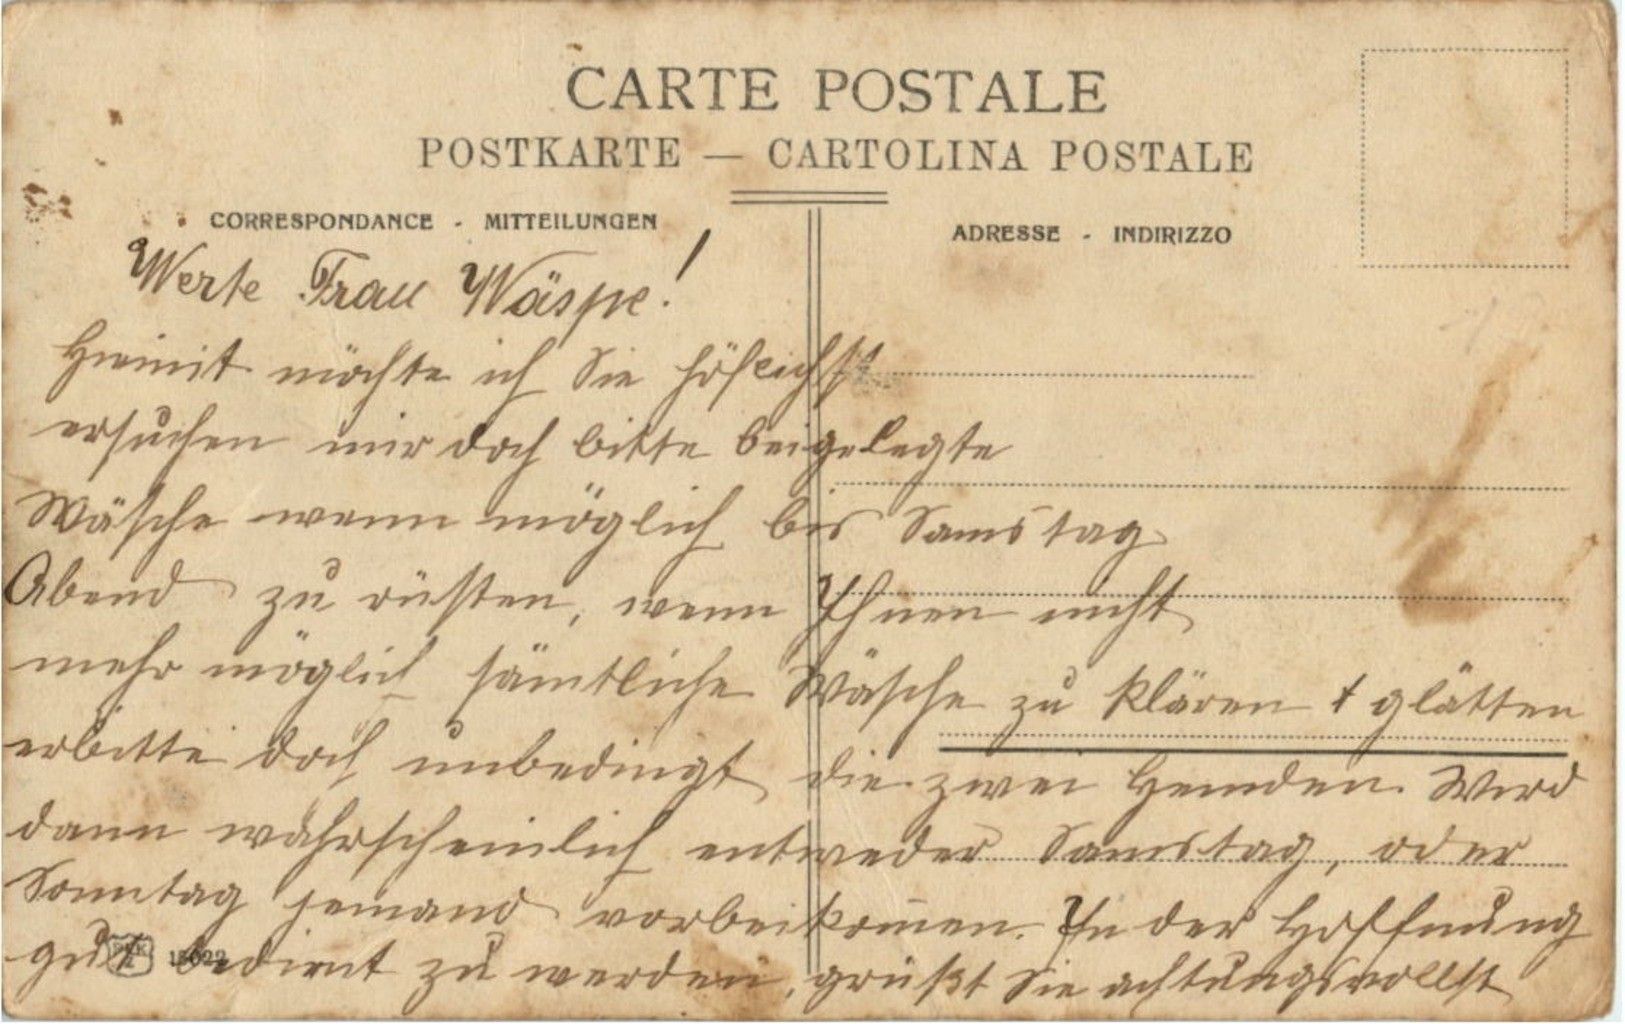 CARTE POSTALE
POSTKARTE — CARTOLINA POSTALE
CORRESPONDANCE - MITTEILUNGEN
ADRESSE - INDIRIZZO
Werte Frau Wäspe!
Hiemit möchte ich Sie höflichst
ersuchen mir doch bitte beigelegte
Wäsche wenn möglich bis Samstag
Abend zu rüsten, wenn Ihnen nicht
mehr möglich sämtliche Wäsche zu klären & glätten
erbitte doch unbedingt die zwei Hemden. Wird
dann wahrscheinlich entweder Samstag, oder
Sonntag jemand vorbeikommen. In der Hoffnung
gut bedient zu werden, grüßt Sie achtungsvollst